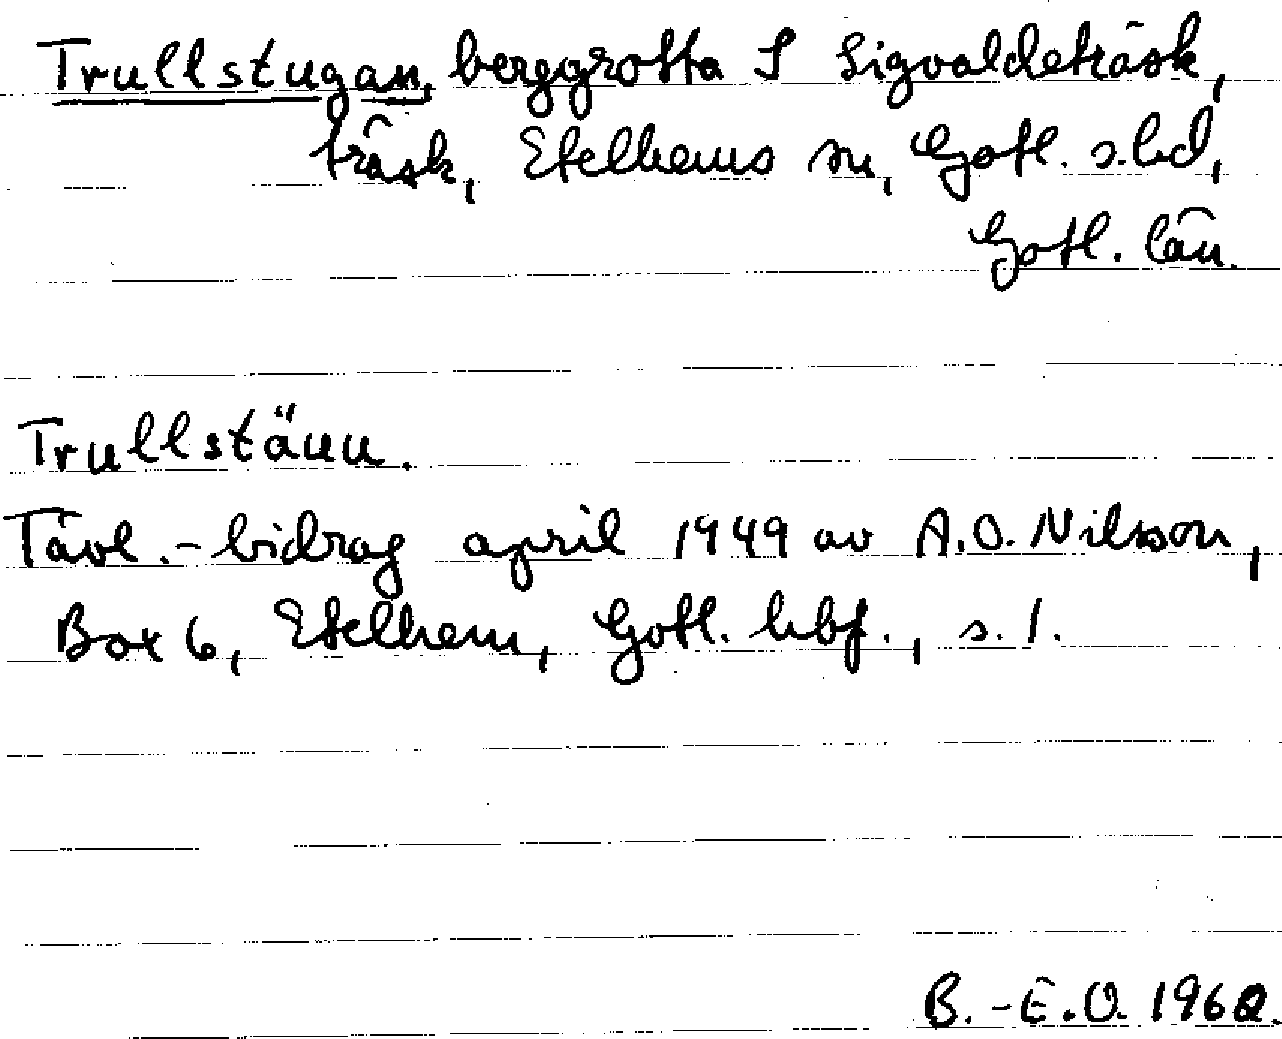 Trullstugan, berggrotta S Sigvaldeträsk,
träsk, Etelhems sn, Gotl. s. hd,
Gotl. län.
Trullstäun.
Tävl.-bidrag april 1949 av A.O. Nilsson,
Box 6, Etelhem, Gotl. hbf., s. 1.
B.-E.O. 1960.